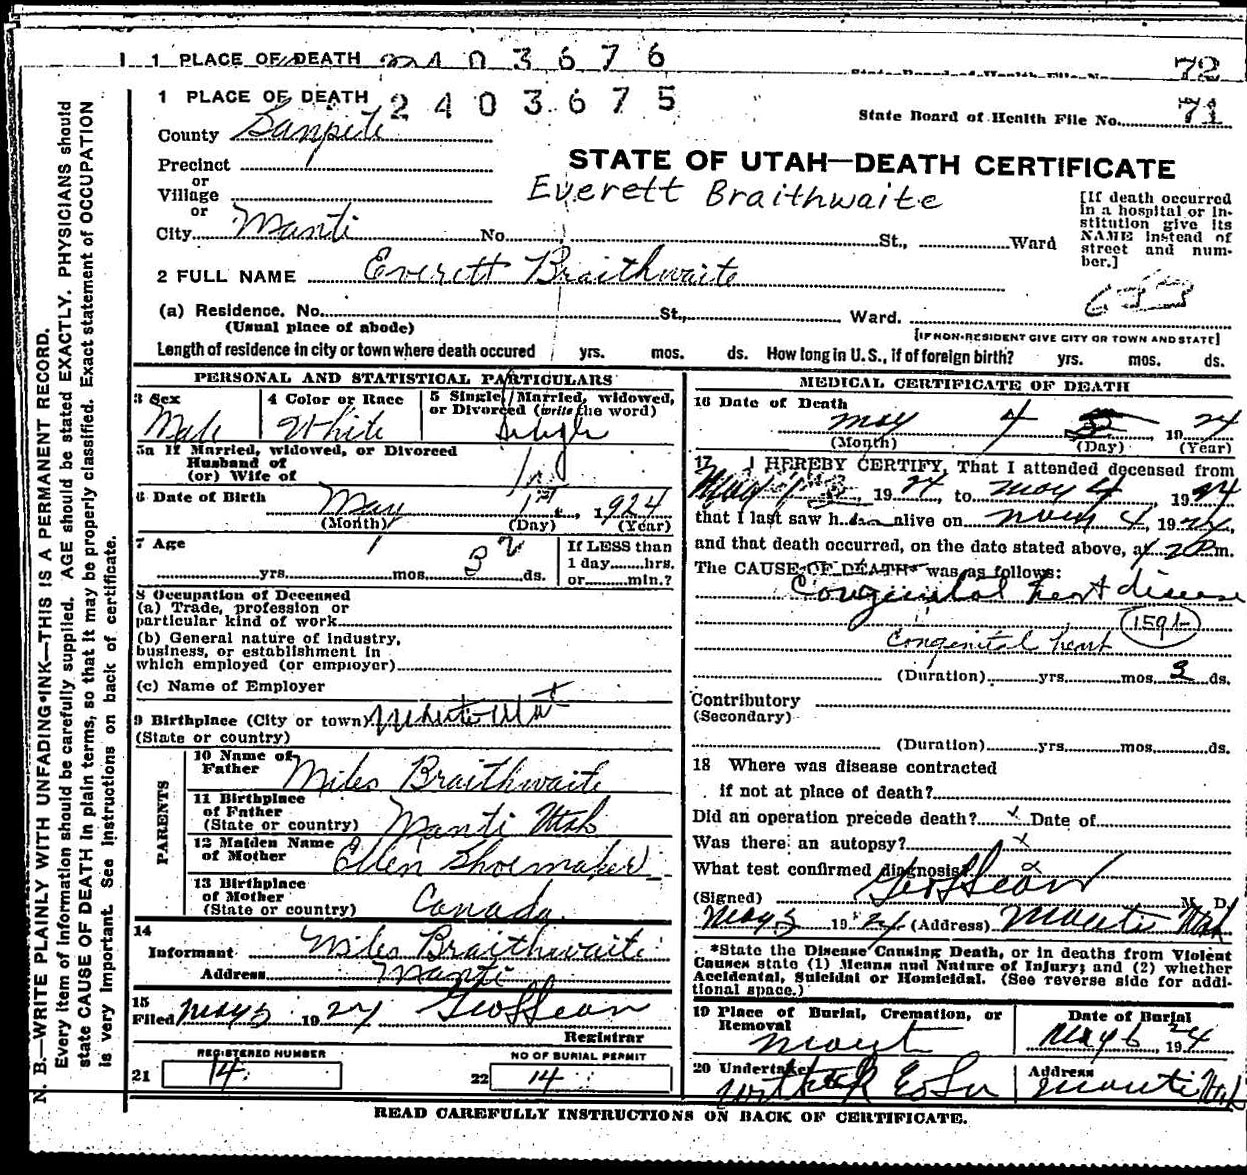 1 PLACE OF DEATH 2403676
State Board of Health File No. 72
1 PLACE OF DEATH 2403675
State Board of Health File No. 71
County Sanpete
Precinct
or
Village
or
City Manti No. St., Ward
STATE OF UTAH—DEATH CERTIFICATE
Everett Braithwaite
[If death occurred in a hospital or institution give its NAME instead of street and number.]
2 FULL NAME Everett Braithwaite
(a) Residence. No. St., Ward.
(Usual place of abode)
[IF NON-RESIDENT GIVE CITY OR TOWN AND STATE]
Length of residence in city or town where death occured yrs. mos. ds. How long in U. S., if of foreign birth? yrs. mos. ds.
PERSONAL AND STATISTICAL PARTICULARS
3 Sex Male
4 Color or Race White
5 Single, Married, widowed, or Divorced (write the word) Single
5a If Married, widowed, or Divorced
Husband of
(or) Wife of
6 Date of Birth May 1st, 1924
(Month) (Day) (Year)
7 Age yrs. mos. 3 ds.
If LESS than 1 day hrs. or min.?
8 Occupation of Deceased
(a) Trade, profession or particular kind of work
(b) General nature of industry, business, or establishment in which employed (or employer)
(c) Name of Employer
9 Birthplace (City or town) Manti Utah
(State or country)
PARENTS
10 Name of Father Miles Braithwaite
11 Birthplace of Father Manti Utah
(State or country)
12 Maiden Name of Mother Ellen Shoemaker
13 Birthplace of Mother Canada
(State or country)
14
Informant Miles Braithwaite
Address Manti
15
Filed May 5 1924
Registrar
REGISTERED NUMBER
21 14
NO OF BURIAL PERMIT
22 14
MEDICAL CERTIFICATE OF DEATH
16 Date of Death
May 4 1924
(Month) (Day) (Year)
17 I HEREBY CERTIFY, That I attended deceased from
May 1924, to May 4 1924
that I last saw h alive on May 4 1924,
and that death occurred, on the date stated above, at 2 P.m.
The CAUSE OF DEATH* was as follows:
Congenital heart disease
159b
Congenital heart
(Duration) yrs. mos. 3 ds.
Contributory
(Secondary)
(Duration) yrs. mos. ds.
18 Where was disease contracted
if not at place of death?
Did an operation precede death? x Date of
Was there an autopsy? x
What test confirmed diagnosis? x
(Signed) M. D.
May 5 1924 (Address) Manti Utah
*State the Disease Causing Death, or in deaths from Violent Causes state (1) Means and Nature of Injury; and (2) whether Accidental, Suicidal or Homicidal. (See reverse side for additional space.)
19 Place of Burial, Cremation, or Removal Manti
Date of Burial May 6, 1924
20 Undertaker
Address Manti Utah
READ CAREFULLY INSTRUCTIONS ON BACK OF CERTIFICATE.
N. B.—WRITE PLAINLY WITH UNFADING INK—THIS IS A PERMANENT RECORD.
Every item of information should be carefully supplied. AGE should be stated EXACTLY. PHYSICIANS should
state CAUSE OF DEATH in plain terms, so that it may be properly classified. Exact statement of OCCUPATION
is very important. See instructions on back of certificate.